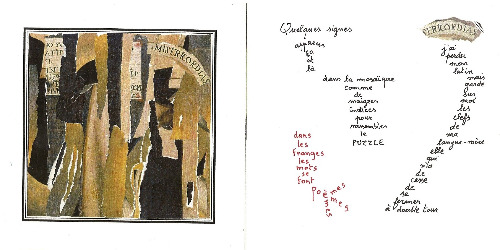 Quelques signes
aperçus
çà
et
là
dans la mosaïque
comme
de
maigres
indices
pour
rassembler
le
PUZZLE
dans
les
franges
les
mots
se
font
Poèmes
j'ai
perdu
mon
latin
mais
gardé
sur
moi
les
clefs
de
ma
langue-mère
elle
qui
n'a
de
cesse
de
se
fermer
à double tour